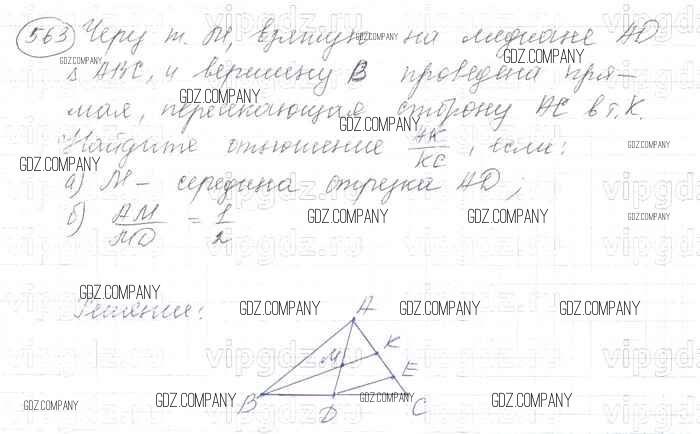 563 Через т. М, взятую на медиане AD
Δ ABC, и вершину B проведена пря-
мая, пересекающая сторону AC в т. K.
Найдите отношение AK/KC, если:
а) M – середина отрезка AD;
б) AM/MD = 1/2
Решение:
A
M
K
E
B
D
C
GDZ.COMPANY
vipgdz.ru